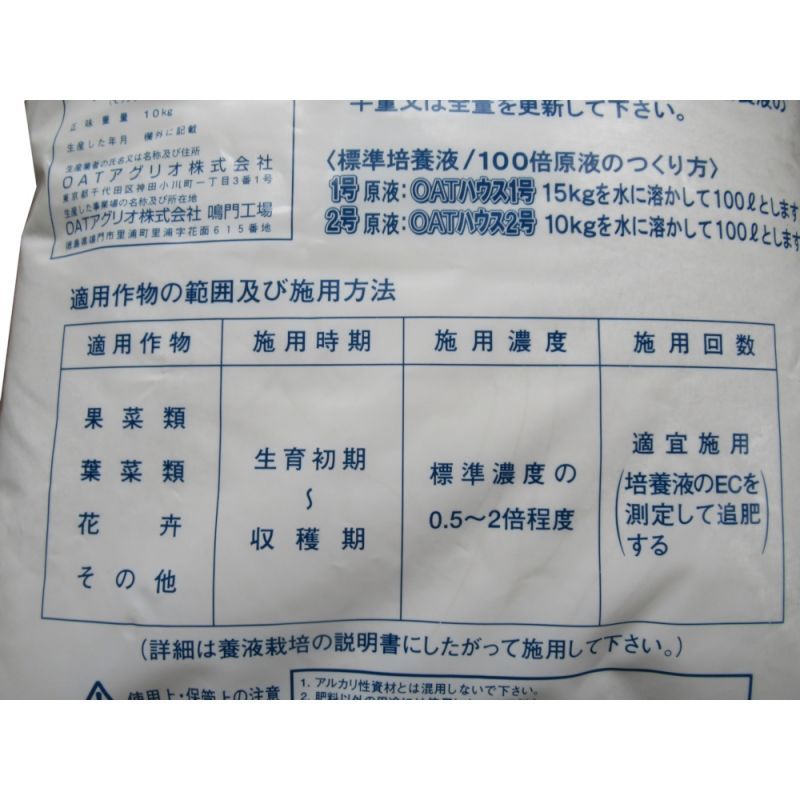 正味重量 10kg
生産した年月 欄外に記載
生産業者の氏名又は名称及び住所
OATアグリオ株式会社
東京都千代田区神田小川町一丁目3番1号
生産した事業場の名称及び所在地
OATアグリオ株式会社 鳴門工場
徳島県鳴門市里浦町里浦字花面615番地
半量又は全量を更新して下さい。
〈標準培養液/100倍原液のつくり方〉
1号原液:OATハウス1号 15kgを水に溶かして100ℓとします
2号原液:OATハウス2号 10kgを水に溶かして100ℓとします
適用作物の範囲及び施用方法
適用作物 施用時期 施用濃度 施用回数
果菜類
葉菜類
花卉
その他
生育初期
〜
収穫期
標準濃度の
0.5〜2倍程度
適宜施用
(培養液のECを
測定して追肥
する)
(詳細は養液栽培の説明書にしたがって施用して下さい。)
使用上・保管上の注意
1. アルカリ性資材とは混用しないで下さい。